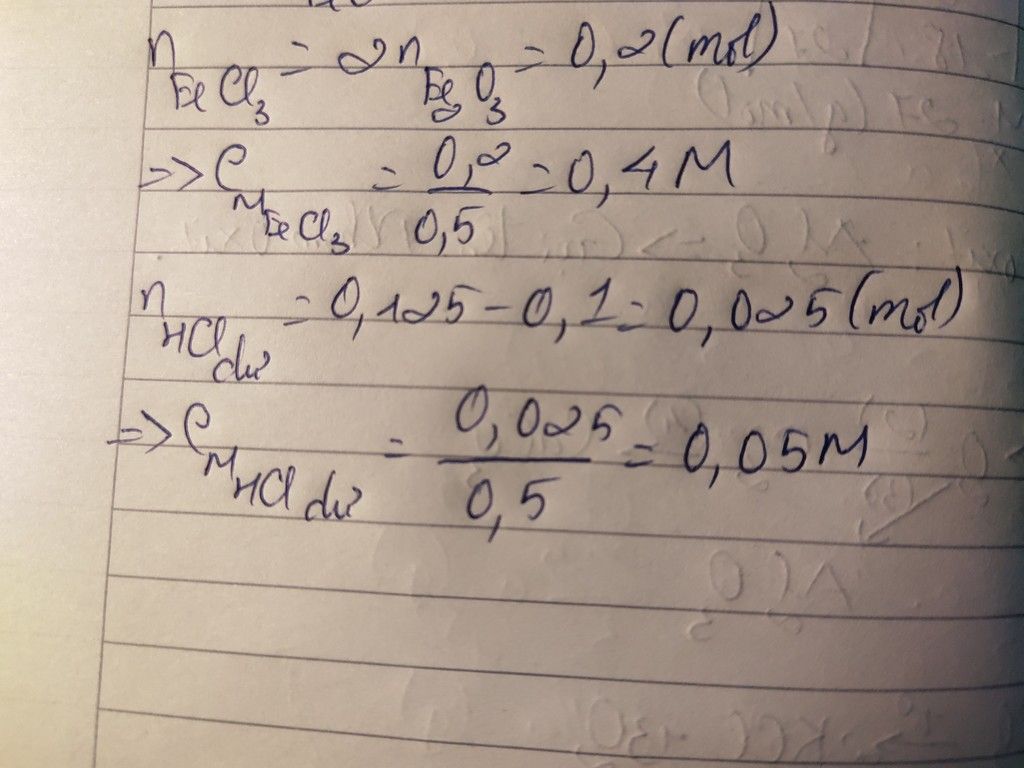 n FeCl3 = 2n Fe2O3 = 0,2 (mol)
=> CM FeCl3 = 0,2 / 0,5 = 0,4 M
n HCl dư = 0,125 - 0,1 = 0,025 (mol)
=> CM HCl dư = 0,025 / 0,5 = 0,05 M